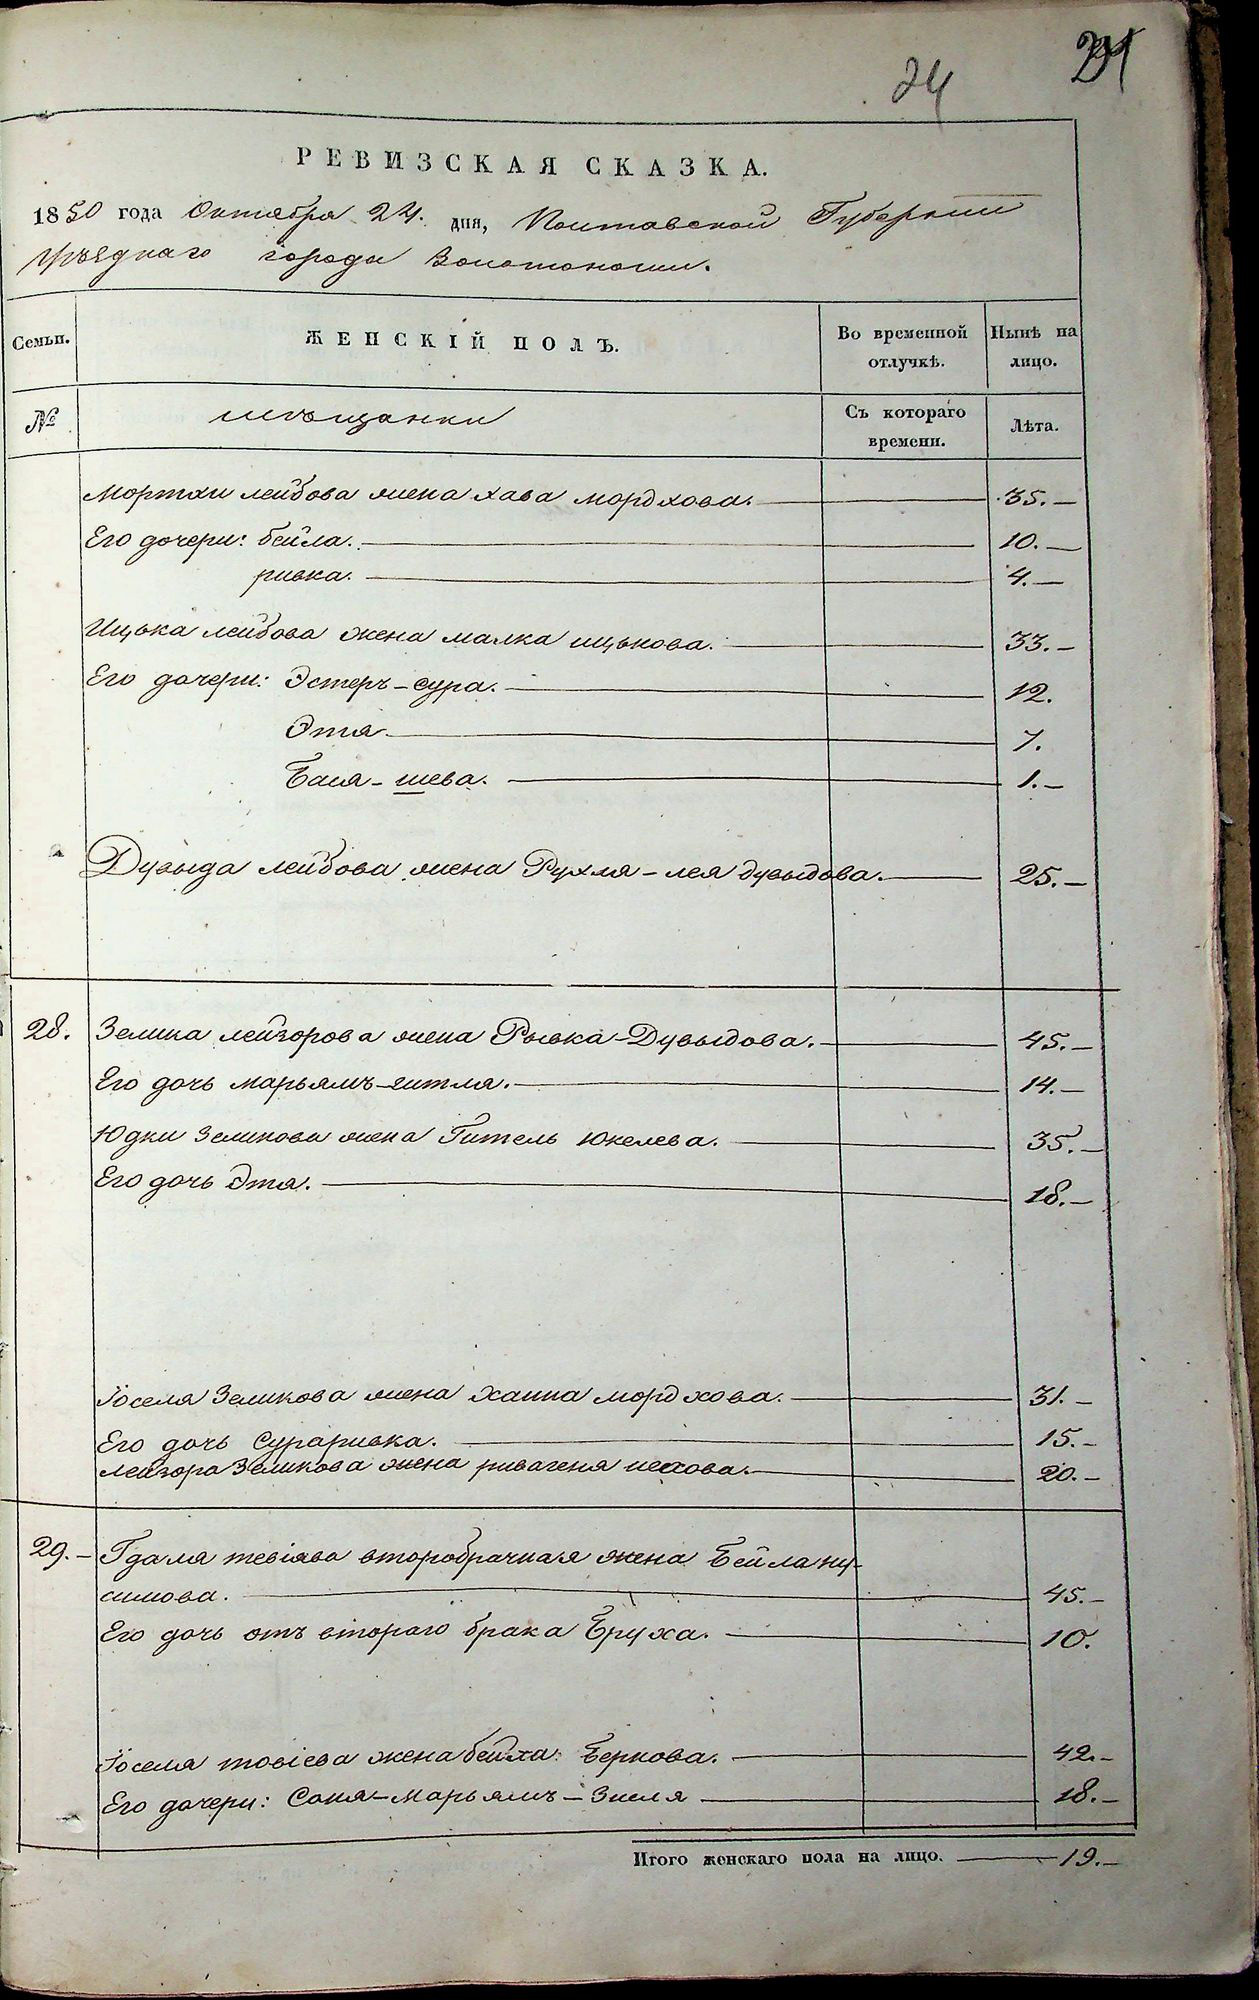 24
РЕВИЗСКАЯ СКАЗКА.
1850 года Октября 24. дня, Полтавской Губернии
уѣзднаго города Золотоноши.
Семьи.
ЖЕНСКІЙ ПОЛЪ.
Во временной
отлучкѣ.
Нынѣ на
лицо.
№
мѣщанки
Съ котораго
времени.
Лѣта.
Мортхи лейбова жена хава мордхова. 35.
Его дочери: бейла. 10.
ривка. 4.
Ицька лейбова жена малка ицькова. 33.
Его дочери: Эстеръ-сура. 12.
Этя 7.
Бася-шева. 1.
Дувыда лейбова жена Рухля-лея дувыдова. 25.
28. Зелика лейзорова жена Рывка-Дувыдова. 45.
Его дочь марьямъ-гитля. 14.
Юдки Зеликова жена Гитель Юкелева. 35.
Его дочь Этя. 18.
Іоселя Зеликова жена Ханна мордхова. 31.
Его дочь Сураривка. 15.
лейзора Зеликова жена 20.
29. Гдаля тевіява второбрачная жена Бейла ну-
симова. 45.
Его дочь отъ втораго брака Бруха. 10.
Іоселя товіева жена бейла Беркова. 42.
Его дочери: Соня-Марьямъ-Зисля 18.
Итого женскаго пола на лицо. 19.